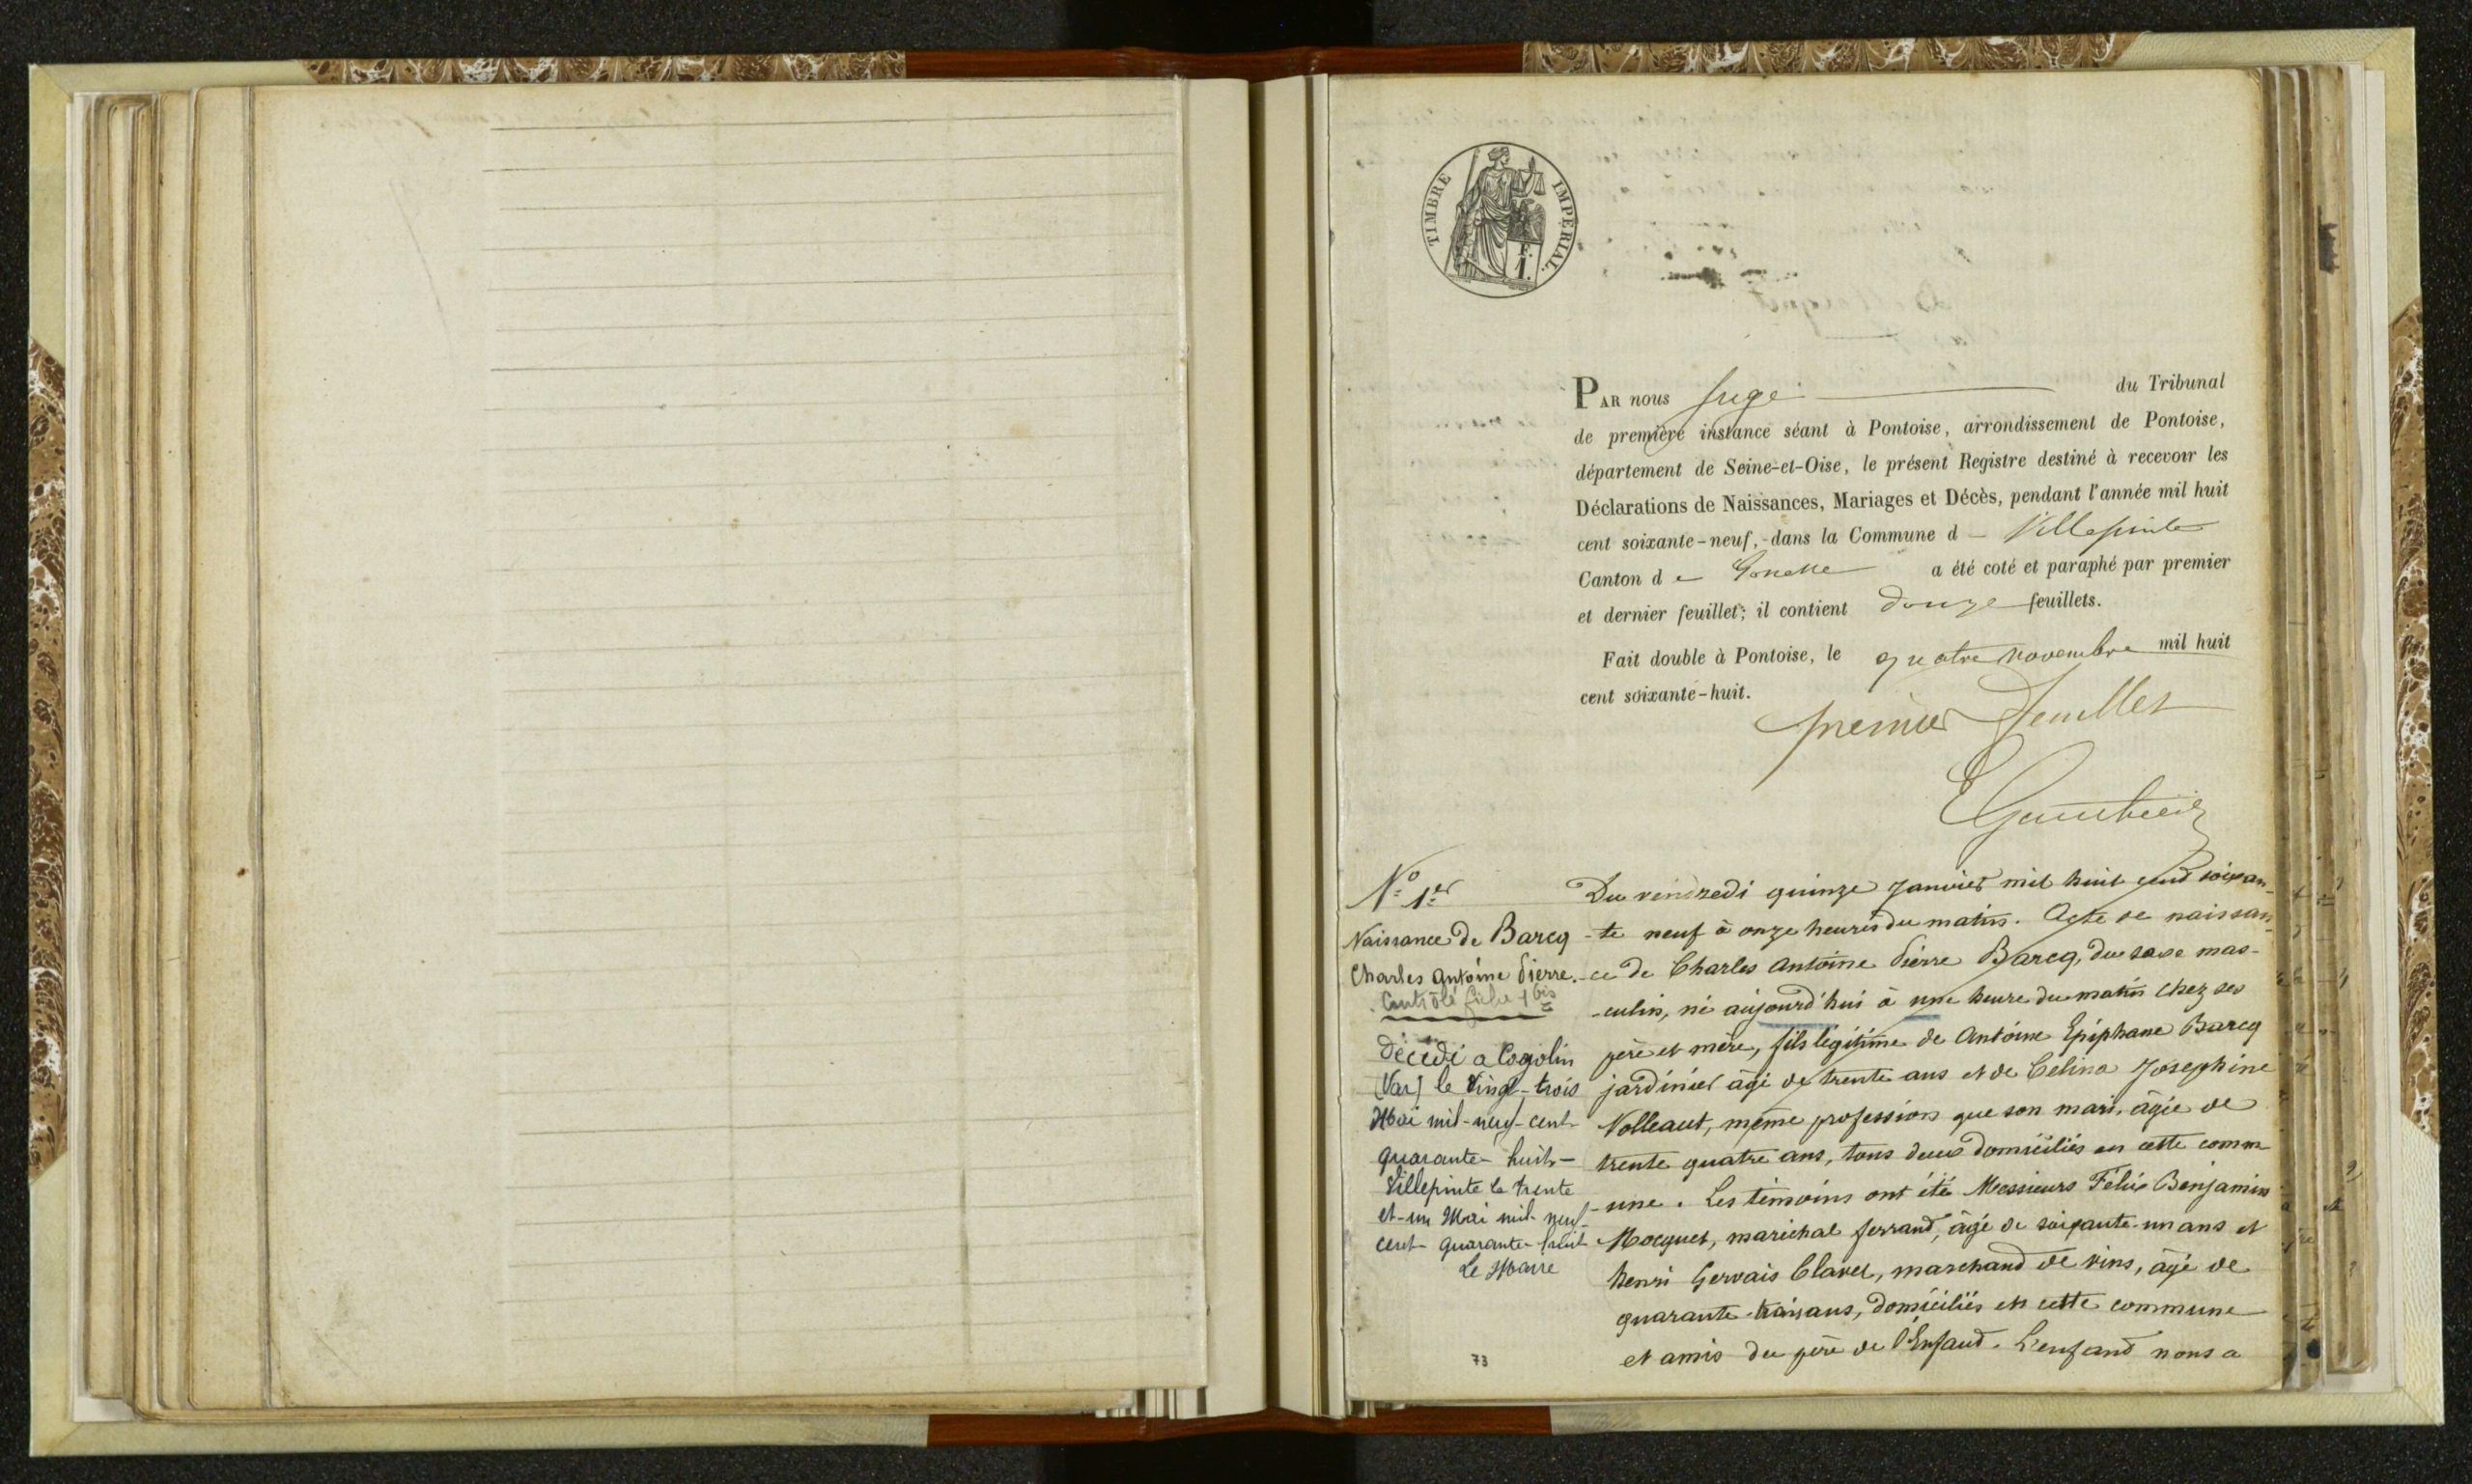 TIMBRE IMPÉRIAL.
F. 1.
PAR nous Juge du Tribunal
de première instance séant à Pontoise, arrondissement de Pontoise,
département de Seine-et-Oise, le présent Registre destiné à recevoir les
Déclarations de Naissances, Mariages et Décès, pendant l'année mil huit
cent soixante-neuf, dans la Commune d Villepinte
Canton de Gonesse a été coté et paraphé par premier
et dernier feuillet; il contient douze feuillets.
Fait double à Pontoise, le quatre novembre mil huit
cent soixante-huit.
premier feuillet
N° 1er
Naissance de Barcq
Charles Antoine Pierre.
Contrôlé fiche 1 bis
Décédé a Cogolin
(Var) le vingt-trois
Mai mil-neuf-cent-
quarante-huit-
Villepinte le trente
et-un Mai mil-neuf-
cent-quarante-huit
Le Maire
Du vendredi quinze Janvier mil huit cent soixan-
-te neuf à onze heures du matin. Acte de naissan-
-ce de Charles Antoine Pierre Barcq, du sexe mas-
-culin, né aujourd'hui à une heure du matin chez ses
père et mère, fils légitime de Antoine Epiphane Barcq
jardinier âgé de trente ans et de Celina Josephine
Volleaut, même profession que son mari, âgée de
trente quatre ans, tous deux domiciliés en cette comm-
-une. Les témoins ont été Messieurs Félix Benjamin
Mocquet, maréchal ferrand, âgé de soixante-un ans et
henri Gervais Clavel, marchand de vins, âgé de
quarante-trois ans, domiciliés en cette commune
et amis du père de l'Enfand. L'enfand nous a
73